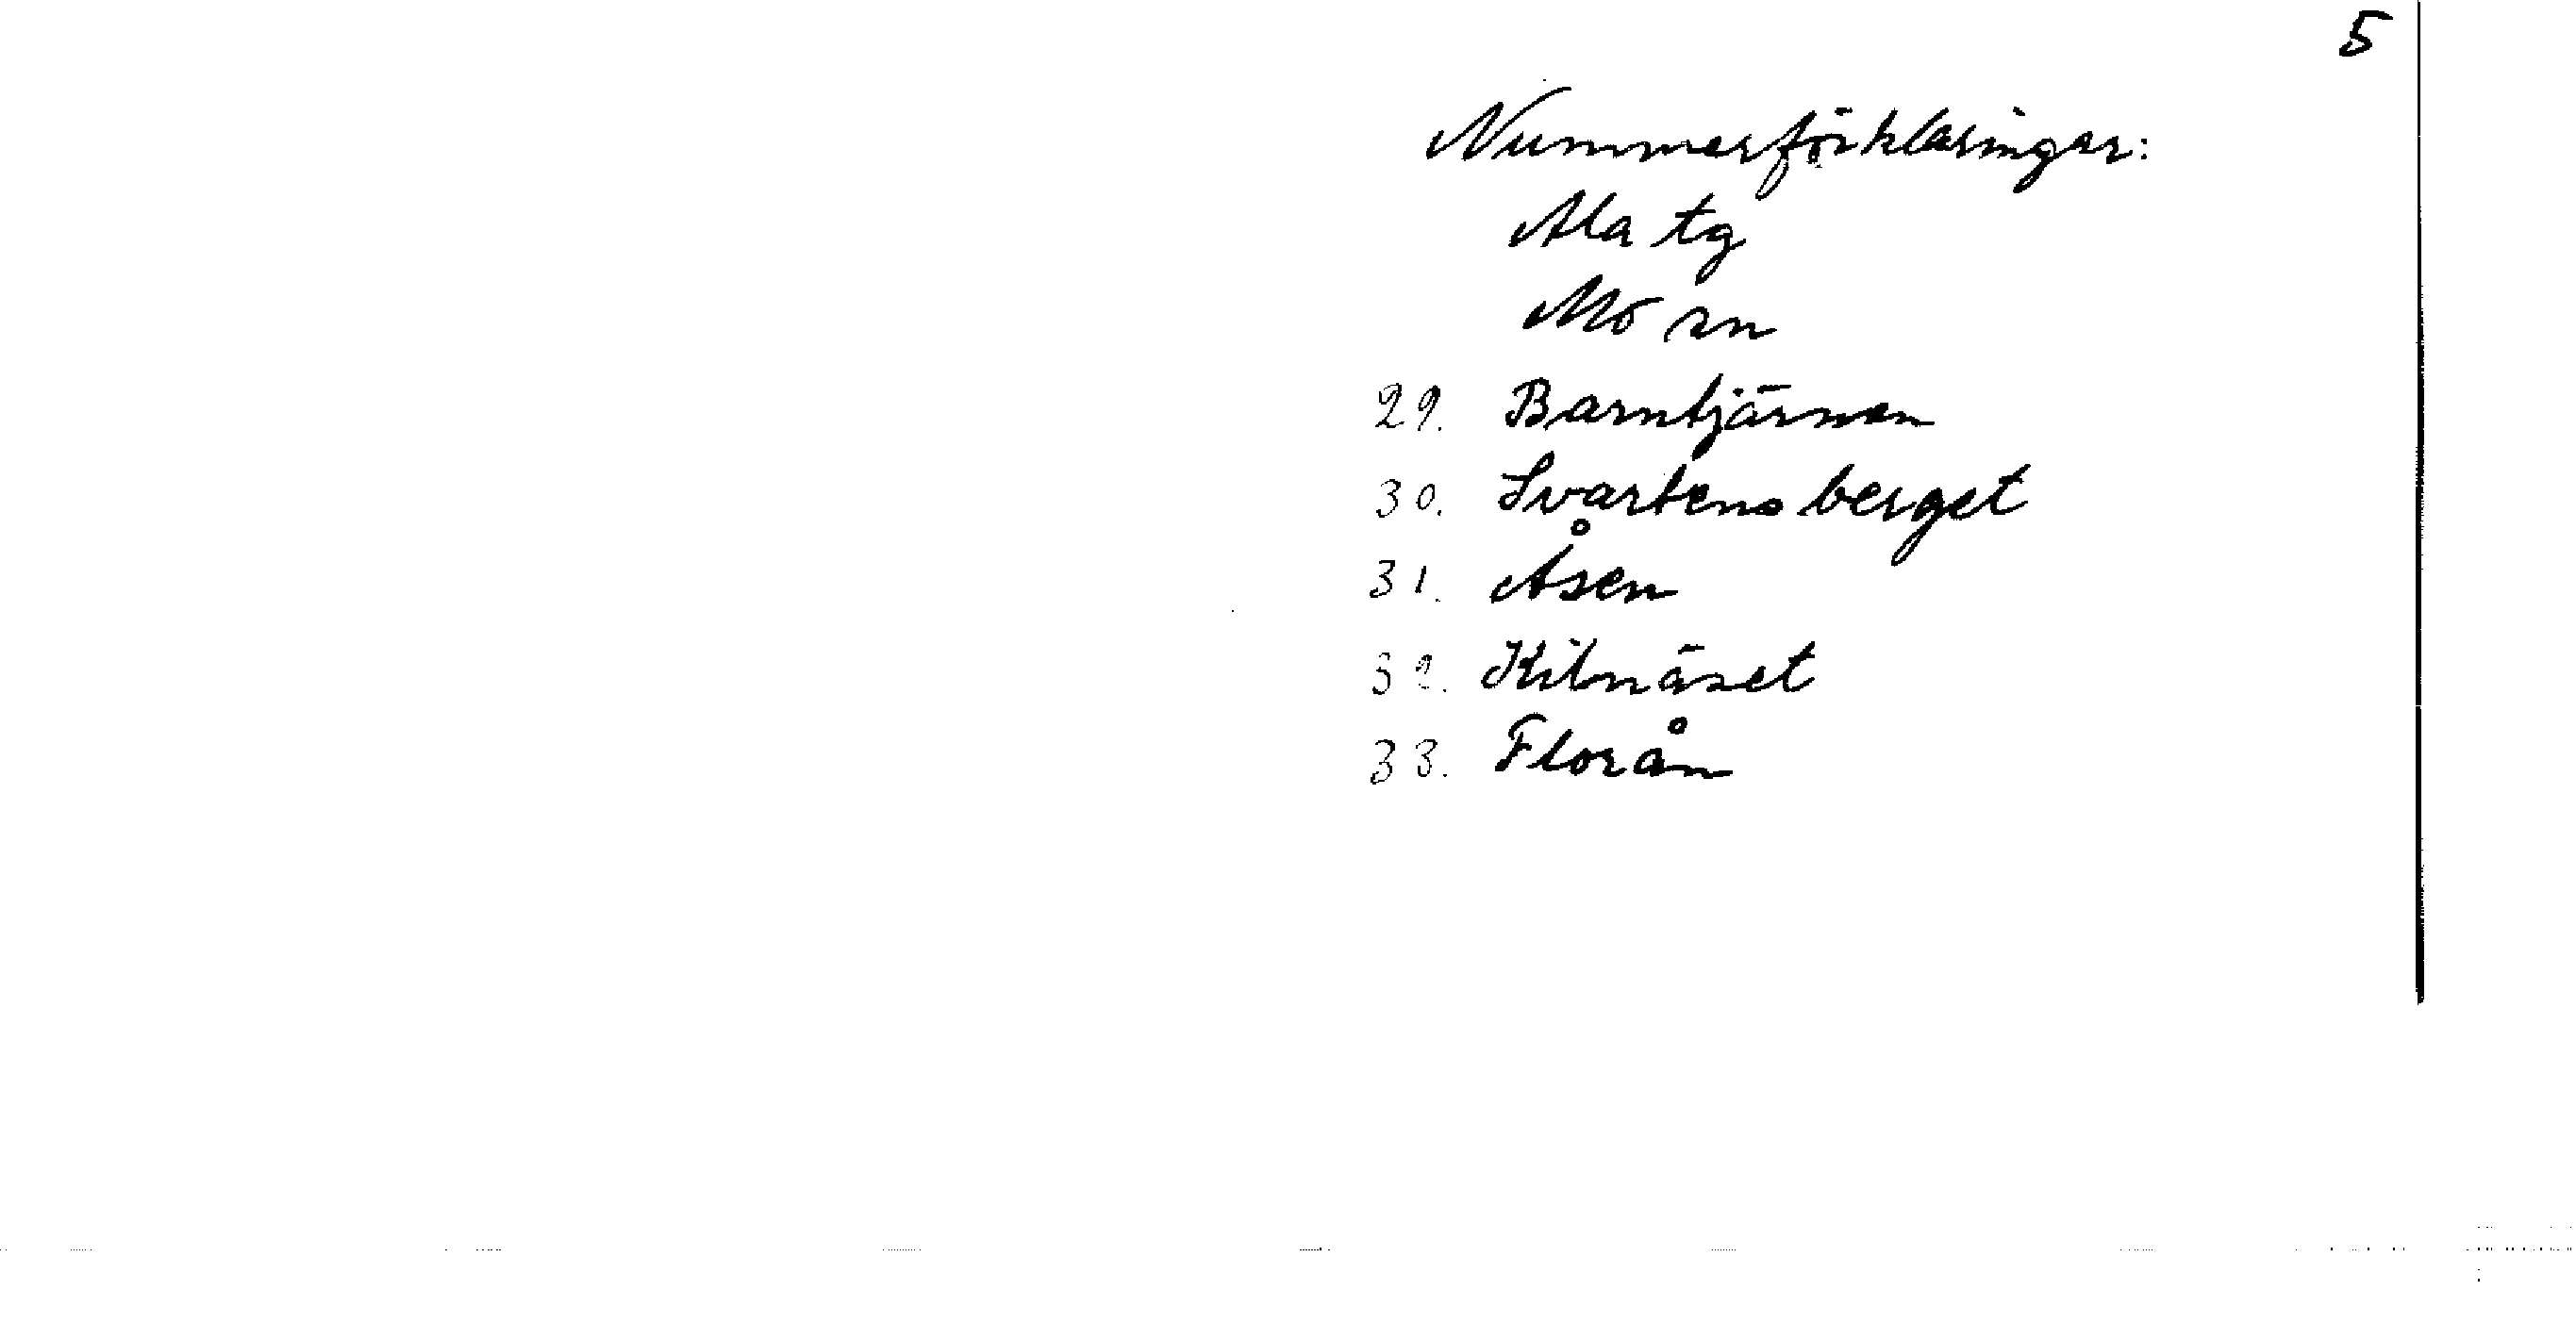 5
Nummerförklaringar:
Ala tg
Mo sn
29. Barntjärnen
30. Svartensberget
31. Åsen
32. Kilnäset
33. Florån